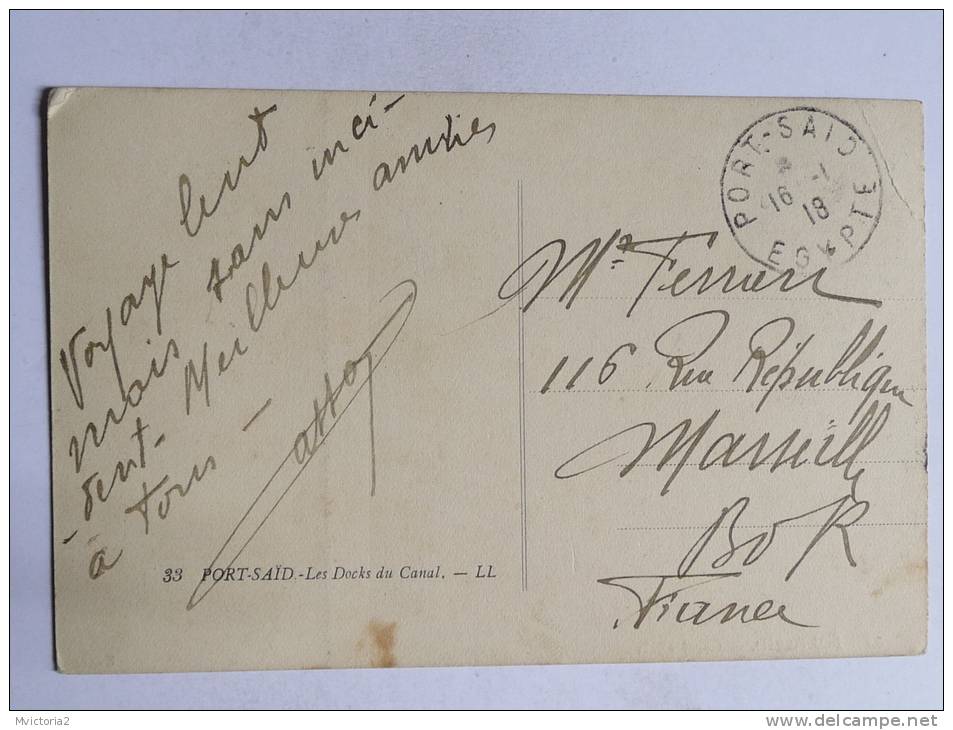 Voyage lent
mais sans inci-
-dent- Meilleures amitiés
à tous -
PORT-SAID
16 -1
18
EGYPTE
Mr Ferrari
116 Rue République
Marseille
B d R
France
33 PORT-SAÏD.-Les Docks du Canal. — LL
Mvictoria2
www.delcampe.net